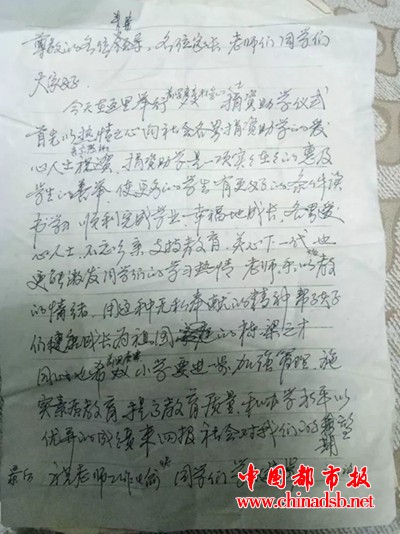 尊敬的各位领导、各位家长 老师们 同学们
大家好
今天在这里举行 捐资助学仪式
首先以热情之心向社会各界捐资助学的爱
心人士 捐资助学是一项实在的惠及
学生的善举 使更多的学生有更好的条件读
书学习 顺利完成学业 幸福地成长 各界爱
心人士 不忘家乡 支持教育 关心下一代 也
更能激发同学们的学习热情 老师乐以教
的情绪 用这种无私奉献的精神 帮孩子
们健康成长为祖国 的栋梁之才
同时也希 小学要进一步加强管理 施
实素质教育 提高教育质量和办学水平 以
优异的成绩来回报社会对我们的期望
最后 祝老师工作愉快 同学们学
中国都市报
www.chinadsb.net